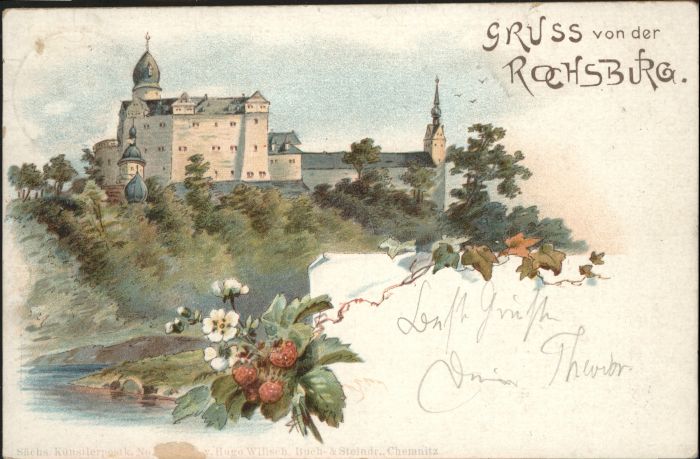 GRUSS von der
ROCHSBURG.
Beste Grüße
Dein Theodor
Sächs. Künstlerpostk. No. v. Hugo Wilisch, Buch- & Steindr., Chemnitz